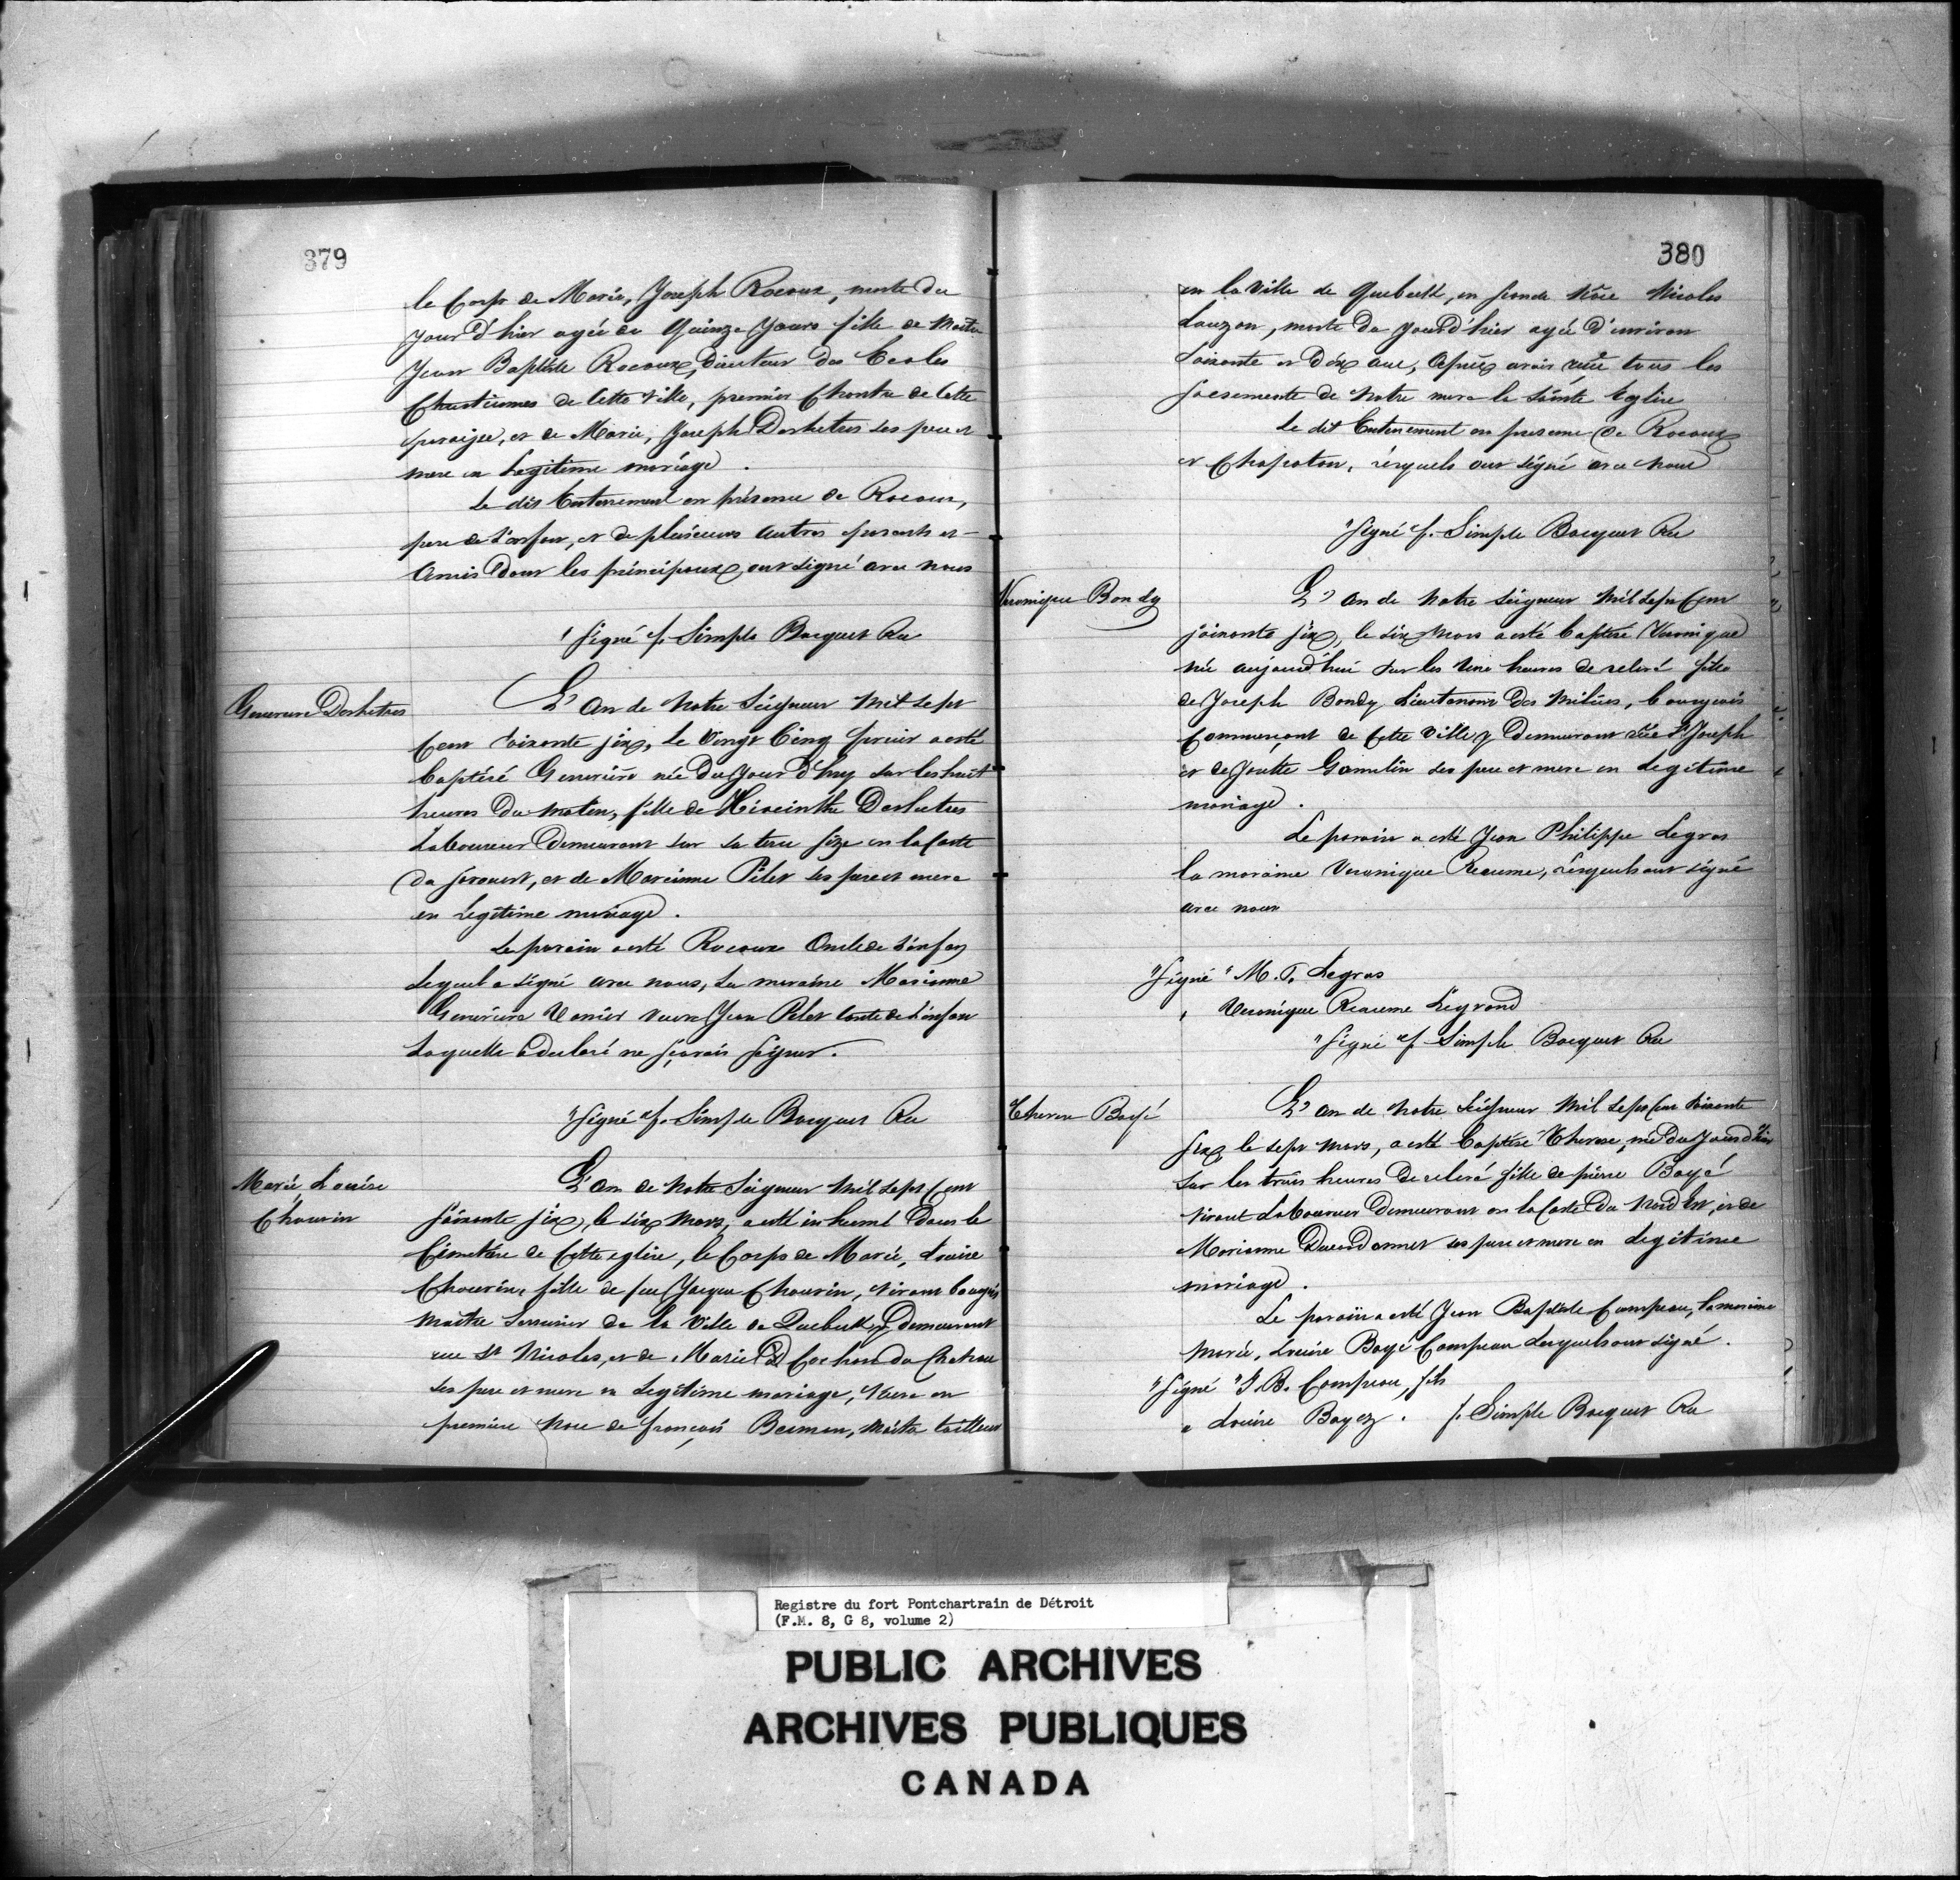 379
le Corps de Marie, Joseph Rocoux, morte du
jour d'hier agée de Quinze jours fille de Maitre
Jean Baptiste Rocoux, Directeur des Ecoles
Chretiennes de Cette Ville, premier Chantre de Cette
paroisse, et de Marie, Joseph Deshetres ses pere et
mere en Legitime mariage.
Le dit Enterrement en présence de Rocoux,
pere de L'enfan, et de plusieurs autres parants et
Amis dont les principaux ont signé avec nous
"Signé f. Simple Bocquet Rec
Genevieve Deshetres
L'an de Notre Seigneur Mil Sept
Cent soixante six, le Vingt Cinq fevrier a esté
baptisé Genevieve née du Jour d'huy sur les huit
heures du matin, fille de Hiacinthe Deshetres
Laboureur Demeurant sur sa terre size en la Coste
du sorouest, et de Marianne Pilet ses pere et mere
en Legitime mariage.
Le parain a esté Rocoux Oncle de L'enfan
Lequel a signé avec nous, La maraine Marianne
Genevieve Vanier veuve Jean Pilet tante de L'enfan
Laquelle a declaré ne sçavoir signer.
"Signé f. Simple Bocquet Rec
Marie Louise
Chauvin
L'an de Notre Seigneur Mil Sept Cent
soixante six, le six Mars, a esté inhumé Dans le
Cimetière de Cette eglise, le Corps de Marie, Louise
Chauvin, fille de feu Jacque Chauvin, vivant bourgeois
Maitre Serrurier de la Ville de Quebecke y demeurant
rue St Nicolas, et de Marie Cochon du Chatrau
ses pere et mere en Legitime mariage, Veuve en
première Noce de François Beaman, Maitre tailleur
380
en la Ville de Quebeck, en seconde Noce Nicolas
Lauzon, morte du jourd'hier agée d'environ
soixante et Dix ans, Après avoir reçue tous les
sacrements de Notre mere la Sainte Eglise
Le dit Enterrement en presence de Rocoux
et Chapoton, lesquels ont signé avec Nous
"Signé f. Simple Bocquet Rec
Veronique Bondy
L'an de Notre Seigneur Mil Sept Cent
soixante six, le six Mars a esté baptisé Veronique
née aujourd'hui sur les Une heures de relevé fille
de Joseph Bondy Lieutenant des Milices, bourgeois
Commerçant de Cette Ville y Demeurant rue St Joseph
et de Josette Gamelin ses pere et mere en Legitime
mariage.
Le parain a esté Jean Philippe Legras
la maraine Veronique Reaume, lesquels ont signé
avec nous
"Signé" M. P. Legras
" Veronique Reaume Legrand
"Signé" f. Simple Bocquet Rec
Therese Boyé
L'an de Notre Seigneur Mil Sept Cent soixante
six le sept Mars, a esté baptisé Therese, née du jourd'hier
sur les trois heures de relevé fille de pierre Boyé
vivant Laboureur Demeurant en la Coste du Nord Est, et de
Marianne Dieudonnet ses pere et mere en Legitime
mariage.
Le parain a esté Jean Baptiste Campeau, la maraine
Marie, Louise Boyé Campeau Lesquels ont signé.
"Signé "J. B. Campeau, fils
" Louise Boyez. f. Simple Bocquet Rec
Registre du fort Pontchartrain de Détroit
(F.M. 8, G 8, volume 2)
PUBLIC ARCHIVES
ARCHIVES PUBLIQUES
CANADA